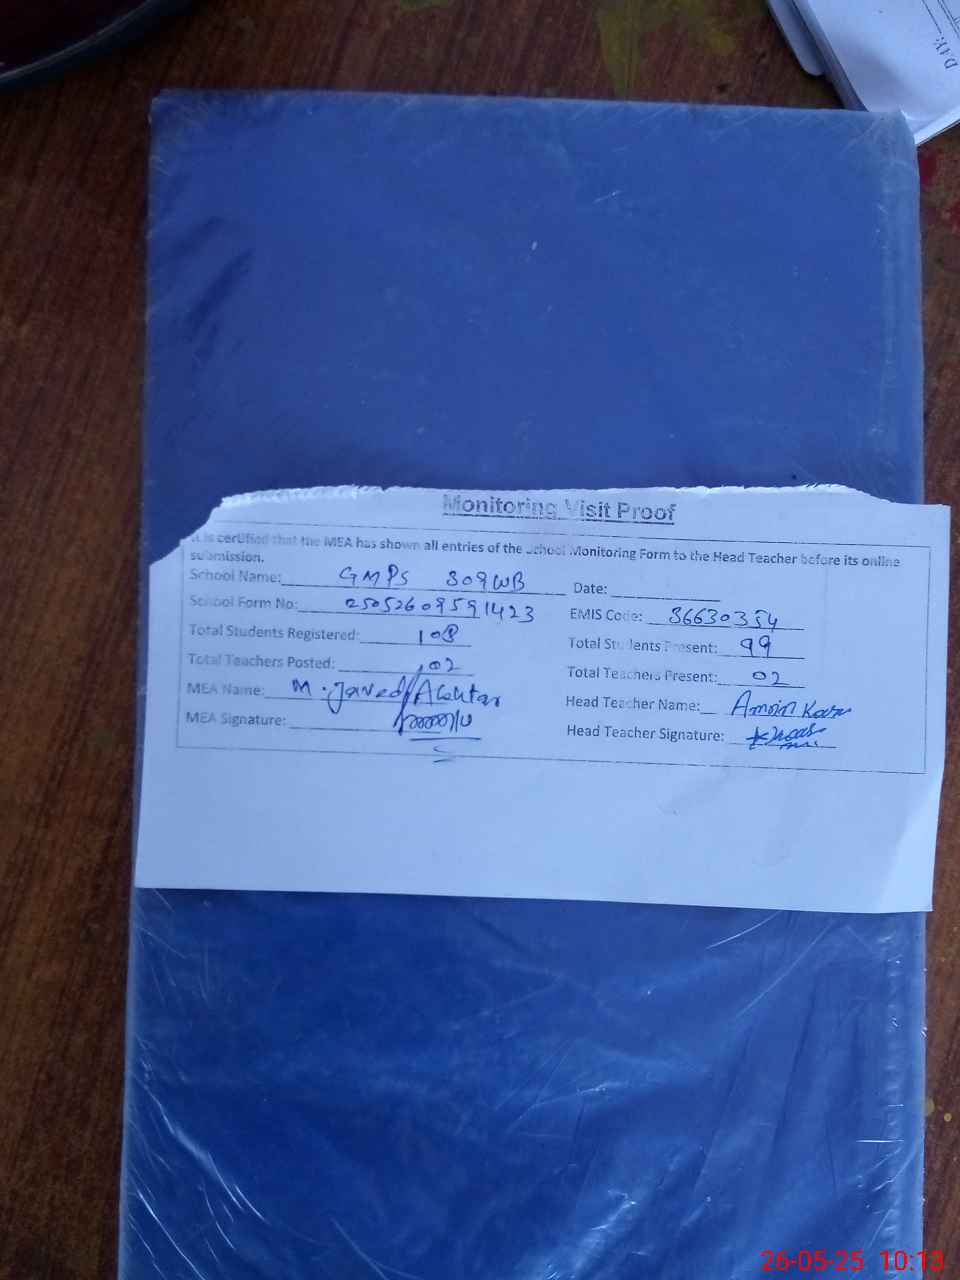 DAY:
Monitoring Visit Proof
It is certified that the MEA has shown all entries of the School Monitoring Form to the Head Teacher before its online
submission.
School Name: GMPS 309WB Date:
School Form No: 25052609591423 EMIS Code: 36630354
Total Students Registered: 108 Total Students Present: 99
Total Teachers Posted: 02 Total Teachers Present: 02
MEA Name: M. Javed Akhtar Head Teacher Name:
MEA Signature: Head Teacher Signature:
26-05-25 10:13